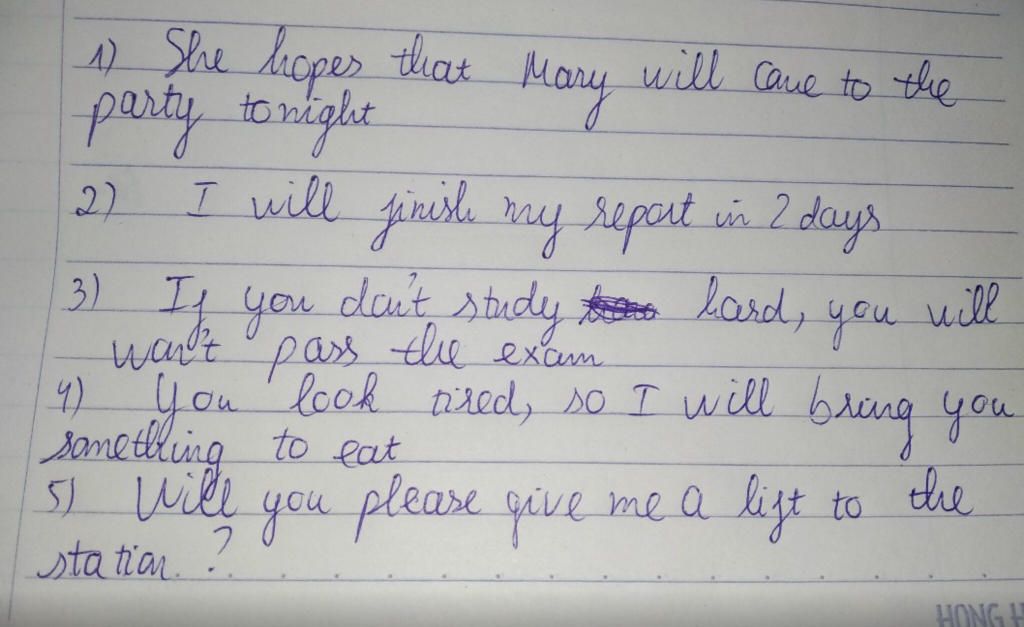 1) She hopes that Mary will come to the
party tonight
2) I will finish my report in 2 days
3) If you don't study hard, you will
won't pass the exam
4) You look tired, so I will bring you
something to eat
5) Will you please give me a lift to the
station?
HONG H